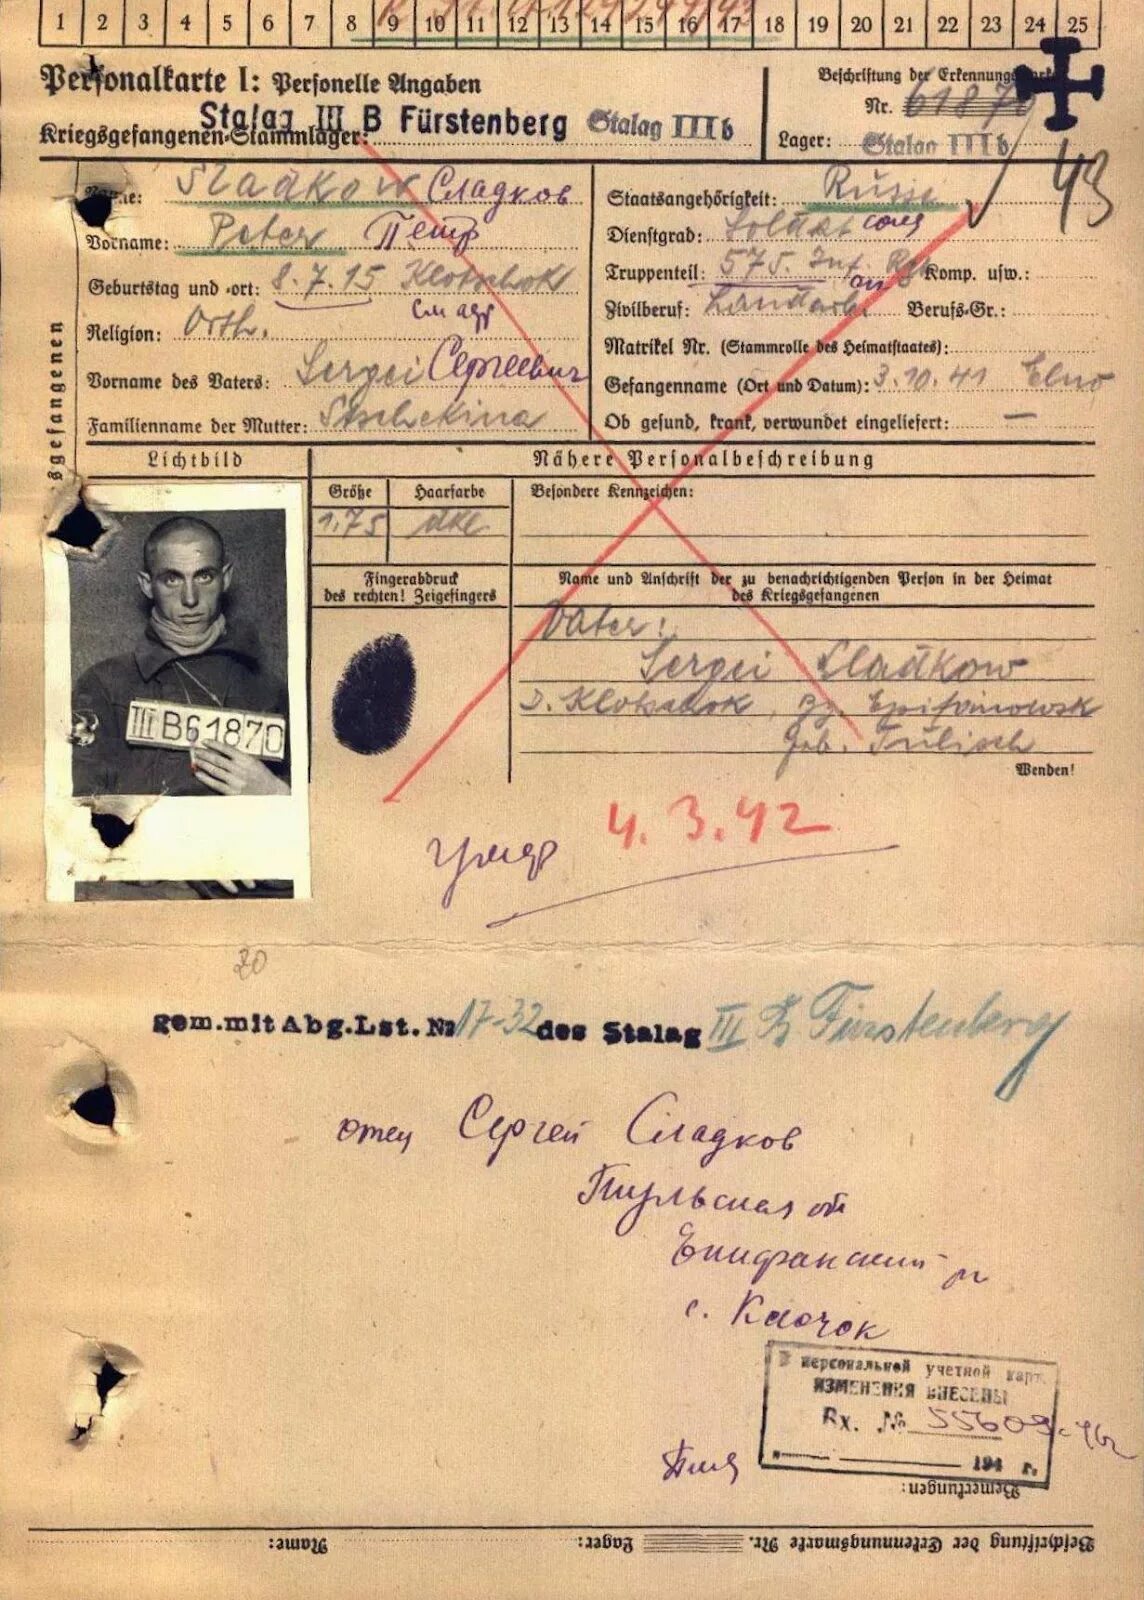 1 2 3 4 5 6 7 8 9 10 11 12 13 14 15 16 17 18 19 20 21 22 23 24 25
Personalkarte I: Personelle Angaben
Stalag III B Fürstenberg Stalag IIIb
Kriegsgefangenen-Stammlager:
Beschriftung der Erkennungsmarke
Nr. 61870
Lager: Stalag IIIb
43
Name: Sladkow Сладков
Vorname: Peter Петр
Geburtstag und -ort: 8.7.15 Klotschok
Religion: Orth.
Vorname des Vaters: Sergei Сергеевич
Familienname der Mutter: Stschekina
Staatsangehörigkeit: Russe
Dienstgrad: Soldat солд
Truppenteil: 575. Inf. Rg Komp. usw.:
Zivilberuf: Landarb. Berufs-Gr.:
Matrikel Nr. (Stammrolle des Heimatstaates):
Gefangenname (Ort und Datum): 3.10.41 Elno
Ob gesund, krank, verwundet eingeliefert: —
sgefangenen
Lichtbild
Nähere Personalbeschreibung
Größe Haarfarbe Besondere Kennzeichen:
1.75 dkl.
Fingerabdruck
des rechten! Zeigefingers
Name und Anschrift der zu benachrichtigenden Person in der Heimat
des Kriegsgefangenen
Vater:
Sergei Sladkow
D. Klotschok, Epifanowsk
Geb. Tulisch
Wenden!
III B61870
умер 4.3.42
20
gem.mit Abg.Lst.№ 17-32 des Stalag III B Fürstenberg
отец Сергей Сладков
Тульская об
Епифанский р
с. Клочок
В персональной учетной карт.
ИЗМЕНЕНИЯ ВНЕСЕНЫ
Вх. № 55609-46г
194 г.
Bemerkungen:
Beschriftung der Erkennungsmarke Nr. Lager: Name: